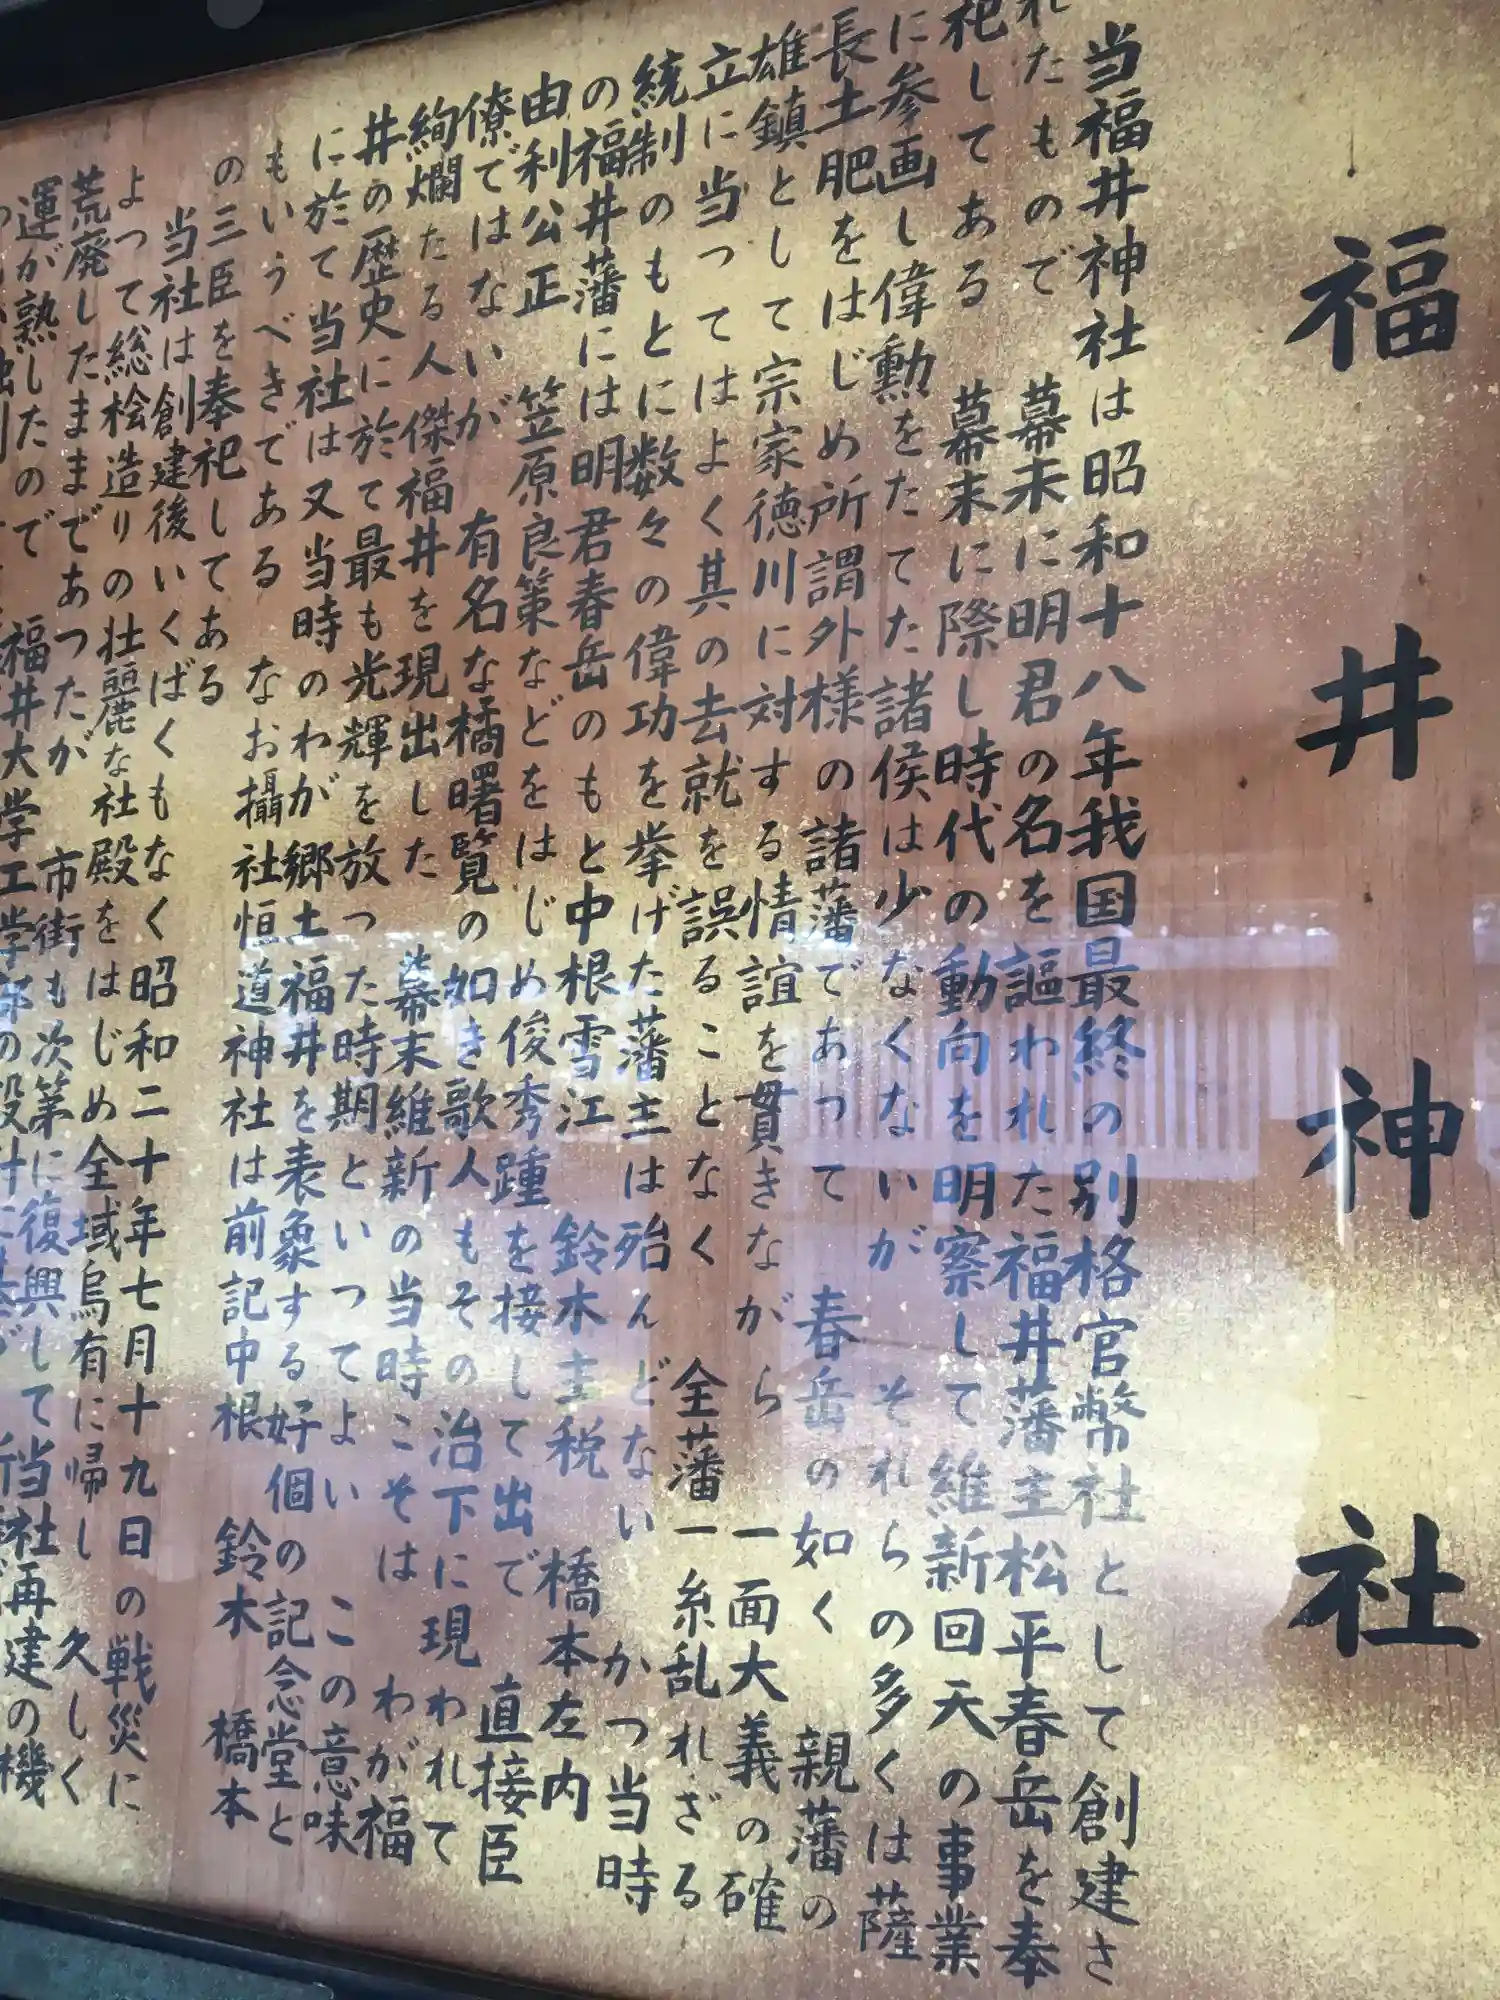 福井神社
当福井神社は昭和十八年我国最終の別格官幣社として創建さ
れたもので 幕末に明君の名を謳われた福井藩主松平春岳を奉
祀してある 幕末に際し時代の動向を明察して維新回天の事業
に参画し偉勲をたてた諸侯は少なくないが それらの多くは薩
長土肥をはじめ所謂外様の諸藩であって 春岳の如く 親藩の
雄鎮として宗家徳川に対する情誼を貫きながら 一面大義の確
立に当ってはよく其の去就を誤ることなく 全藩一糸乱れざる
統制のもとに数々の偉功を挙げた藩主は殆んどない かつ当時
の福井藩には明君春岳のもと中根雪江 鈴木主税 橋本左内
由利公正 笠原良策などをはじめ俊秀踵を接して出で 直接臣
僚ではないが 有名な橘曙覧の如き歌人もその治下に現われて
絢爛たる人傑福井を現出した 幕末維新の当時こそは わが福
井の歴史に於て最も光輝を放った時期といってよい この意味
に於て当社は又当時のわが郷土福井を表象する好個の記念堂と
もいうべきである なお攝社恒道神社は前記中根 鈴木 橋本
の三臣を奉祀してある
当社は創建後いくばくもなく昭和二十年七月十九日の戦災に
よって総桧造りの壮麗な社殿をはじめ全域烏有に帰し 久しく
荒廃したままであつたが 市街も次第に復興して 当社再建の機
運が熟したので 福井大学工学部の設計